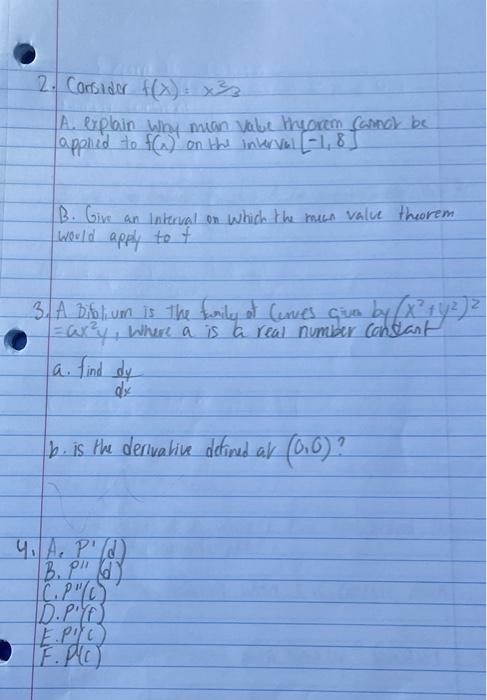 2. Consider f(x) = x^2/3
A. explain why mean value theorem cannot be
applied to f(x) on the interval [-1, 8]
B. Give an interval on which the mean value theorem
would apply to f
3. A Bifolium is the family of Curves given by (x²+y²)²
= ax²y, where a is a real number constant
a. find dy
dx
b. is the derivative defined at (0,0)?
4. A. P'(d)
B. P''(d)
C. P''(c)
D. P'(f)
E. P'(c)
F. P(c)